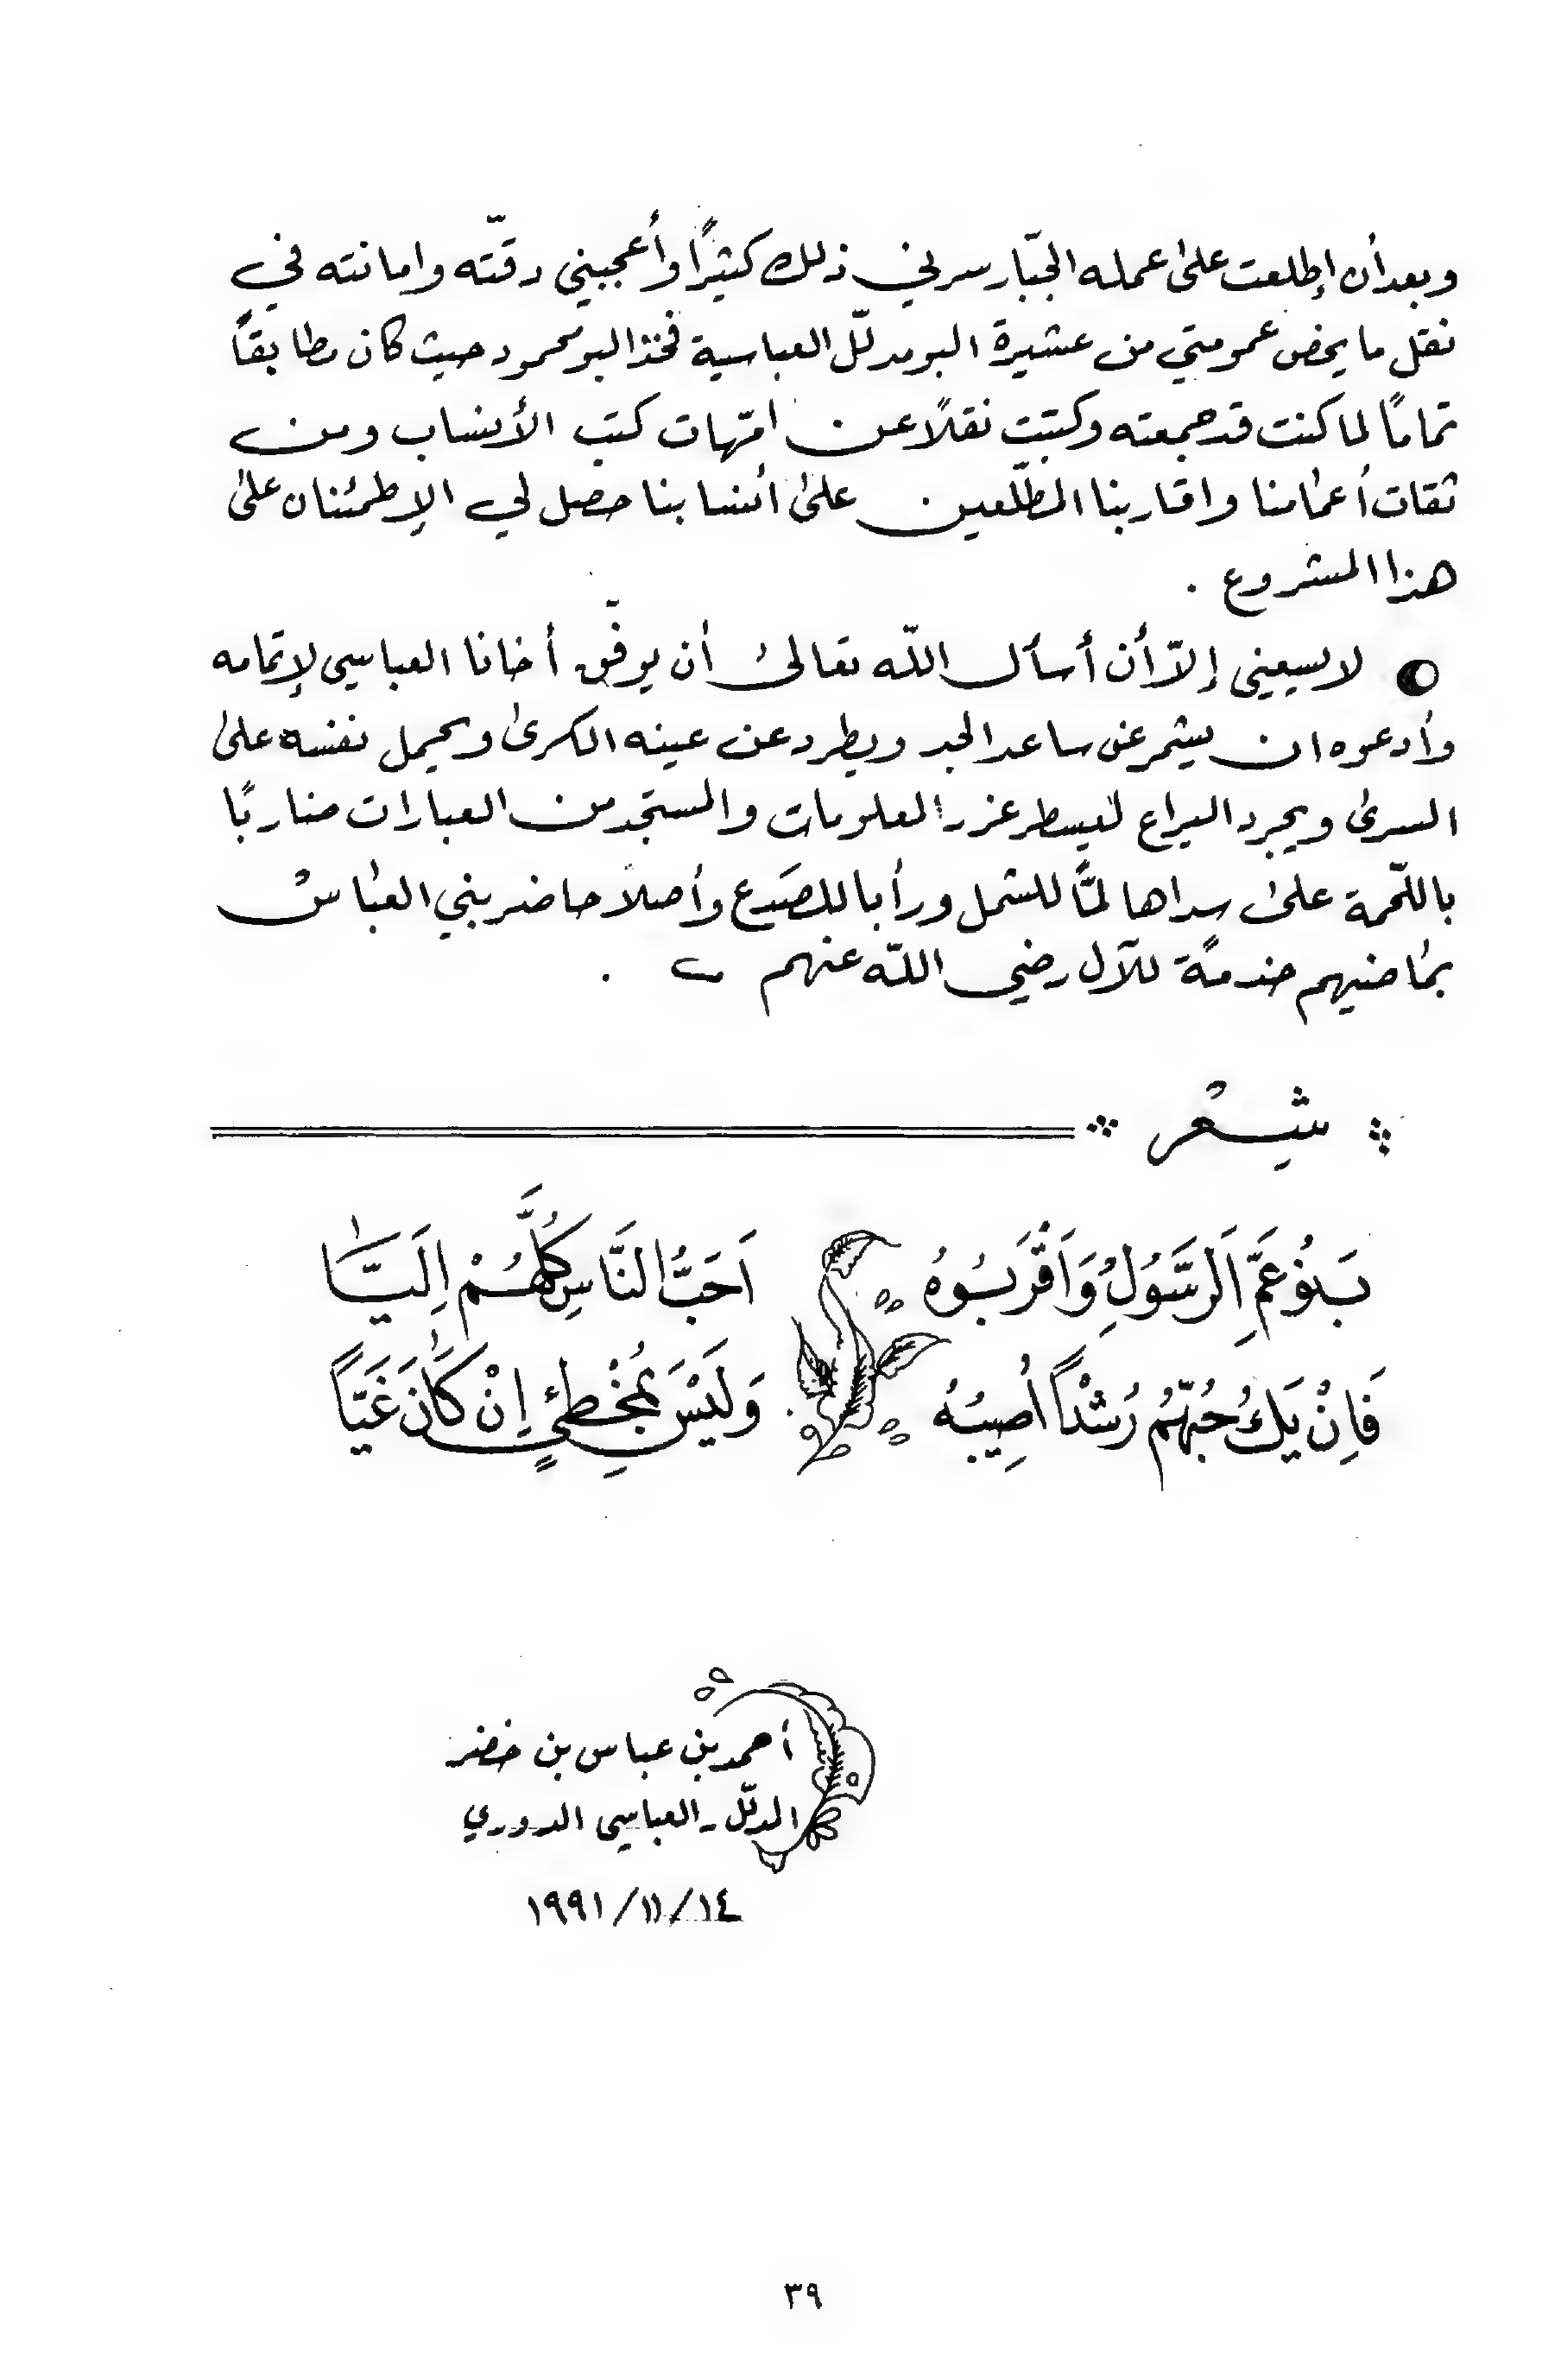 وبعد أن إطلعت على عمله الجبّار سرني ذلك كثيرًا وأعجبني دقّته وامانته في
نقل ما يخص عمومتي من عشيرة البو مدلّل العباسية فخذ البو محمود حيث كان مطابقاً
تمامًا لما كنت قد جمعته وكتبت نقلًا عن امّهات كتب الأنساب ومن
ثقات أعمامنا واقاربنا المطلّعين على أنسابنا حصل لي الإطمئنان على
هذا المشروع .
لا يسعني إلاّ أن أسأل اللّه تعالى أن يوفّق أخانا العباسي لإتمامه
وأدعوه ان يشمر عن ساعد الجد ويطرد عن عينه الكرى ويحمل نفسه على
السرى ويجرد اليراع ليسطر غزر المعلومات والمستجد من العبارات ضاربًا
باللّحمة على سداها لمًّا للشمل ورأبا للصَدع وأصلاً حاضر بني العباسْ
بماضيهم خدمةً للآل رضي اللّه عنهم .
شِعْر
بَنُو عَمِّ اَلرَّسَوُلِ وَاَقْرَبُوهُ اَحَبُّ النَّاسِ كُلَّهُمْ اِلَيَّا
فَاِنْ يَكُ حُبّهُمُ رُشْداً اُصِيبُهُ وَلَيْسَ بمُخْطِئٍ إِنْ كَانَ غَيّاً
أحمد بن عباس بن خضر
المدلّل - العباسي الدوري
١٩٩١/١١/١٤
٣٩